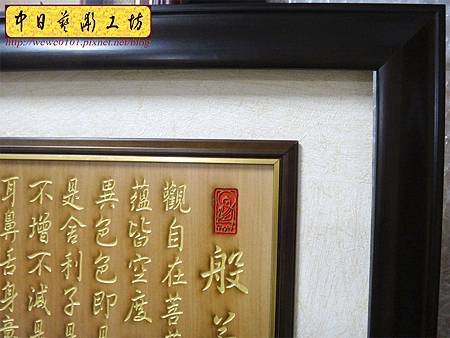 中日藝彫工坊
http://wewe0101.pixnet.net/blog
般
觀自在菩
蘊皆空度
異色色即
是舍利子是
不增不減是
耳鼻舌身意